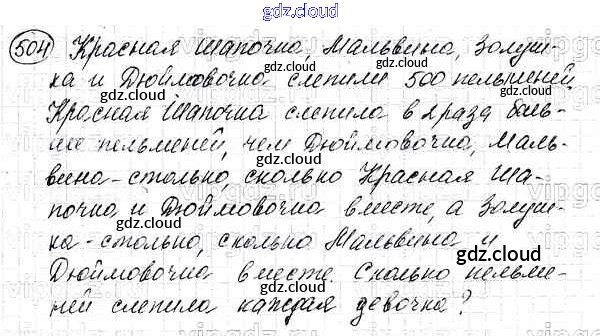 gdz.cloud
504 Красная Шапочка, Мальвина, Золуш-
ка и Дюймовочка слепили 500 пельменей.
Красная Шапочка слепила в 2 раза боль-
ше пельменей, чем Дюймовочка, Маль-
вина - столько, сколько Красная Ша-
почка и Дюймовочка вместе, а Золуш-
ка - столько, сколько Мальвина и
Дюймовочка вместе. Сколько пельме-
ней слепила каждая девочка?